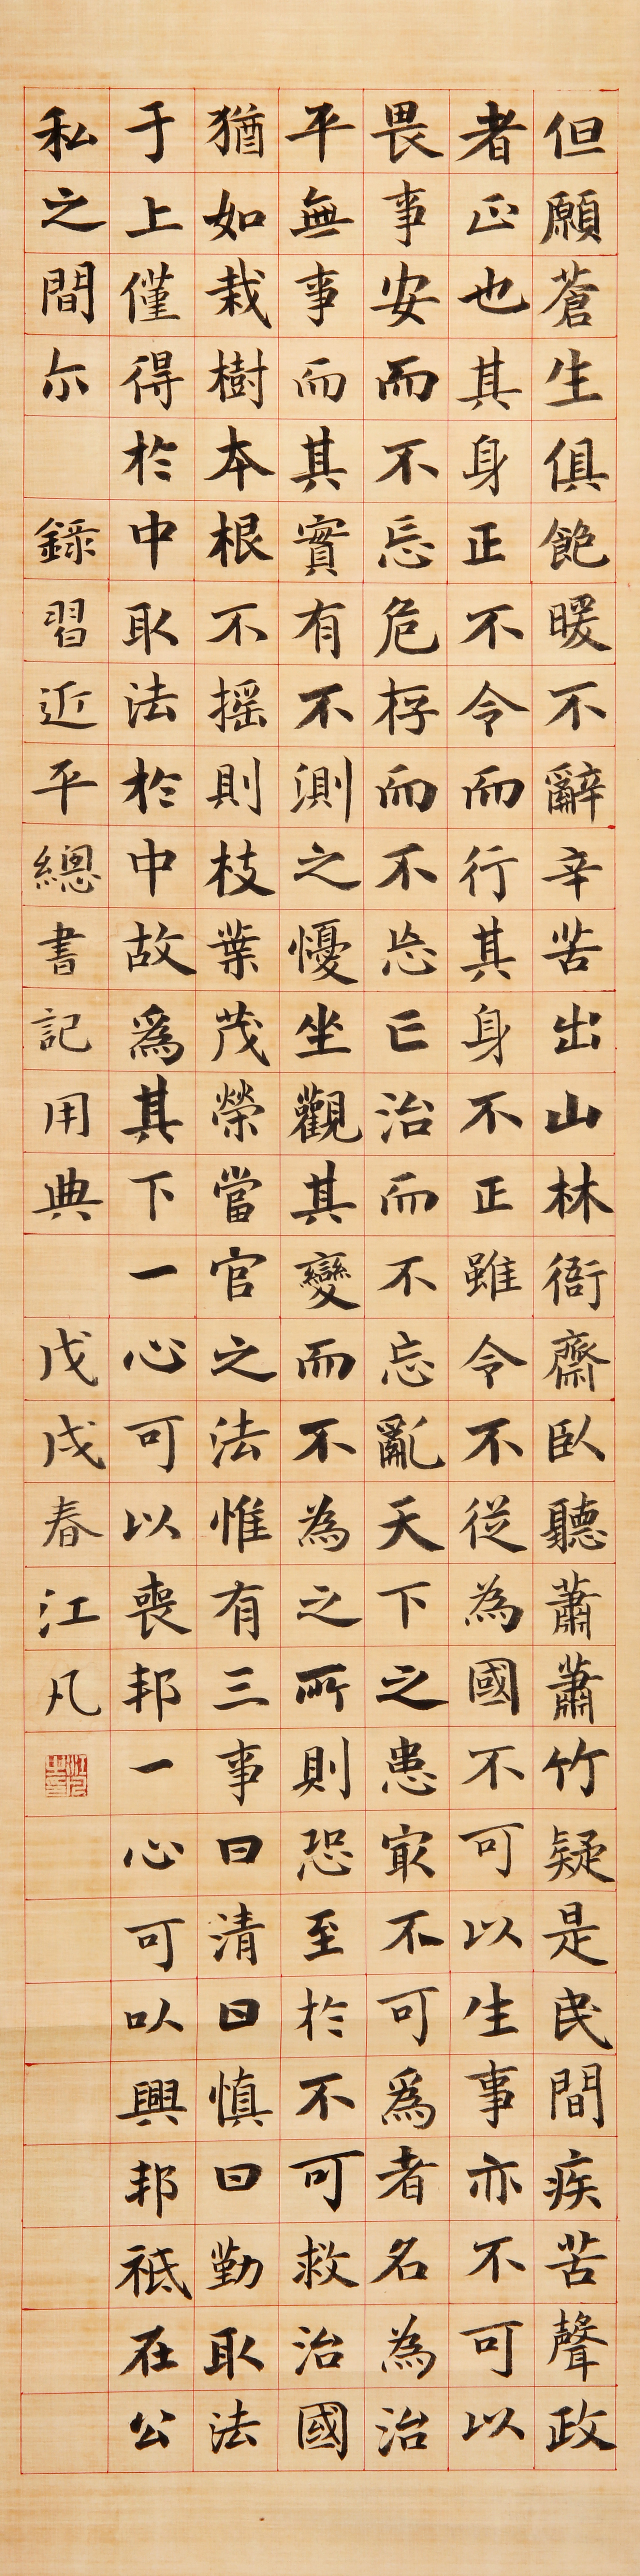 但願蒼生俱飽暖不辭辛苦出山林衙齋臥聽蕭蕭竹疑是民間疾苦聲政
者正也其身正不令而行其身不正雖令不從為國不可以生事亦不可以
畏事安而不忘危存而不忘亡治而不忘亂天下之患最不可爲者名為治
平無事而其實有不測之憂坐觀其變而不為之所則恐至於不可救治國
猶如栽樹本根不搖則枝葉茂榮當官之法惟有三事曰清曰慎曰勤取法
于上僅得於中取法於中故爲其下一心可以喪邦一心可以興邦祗在公
私之間尔 錄習近平總書記用典 戊戌春江凡